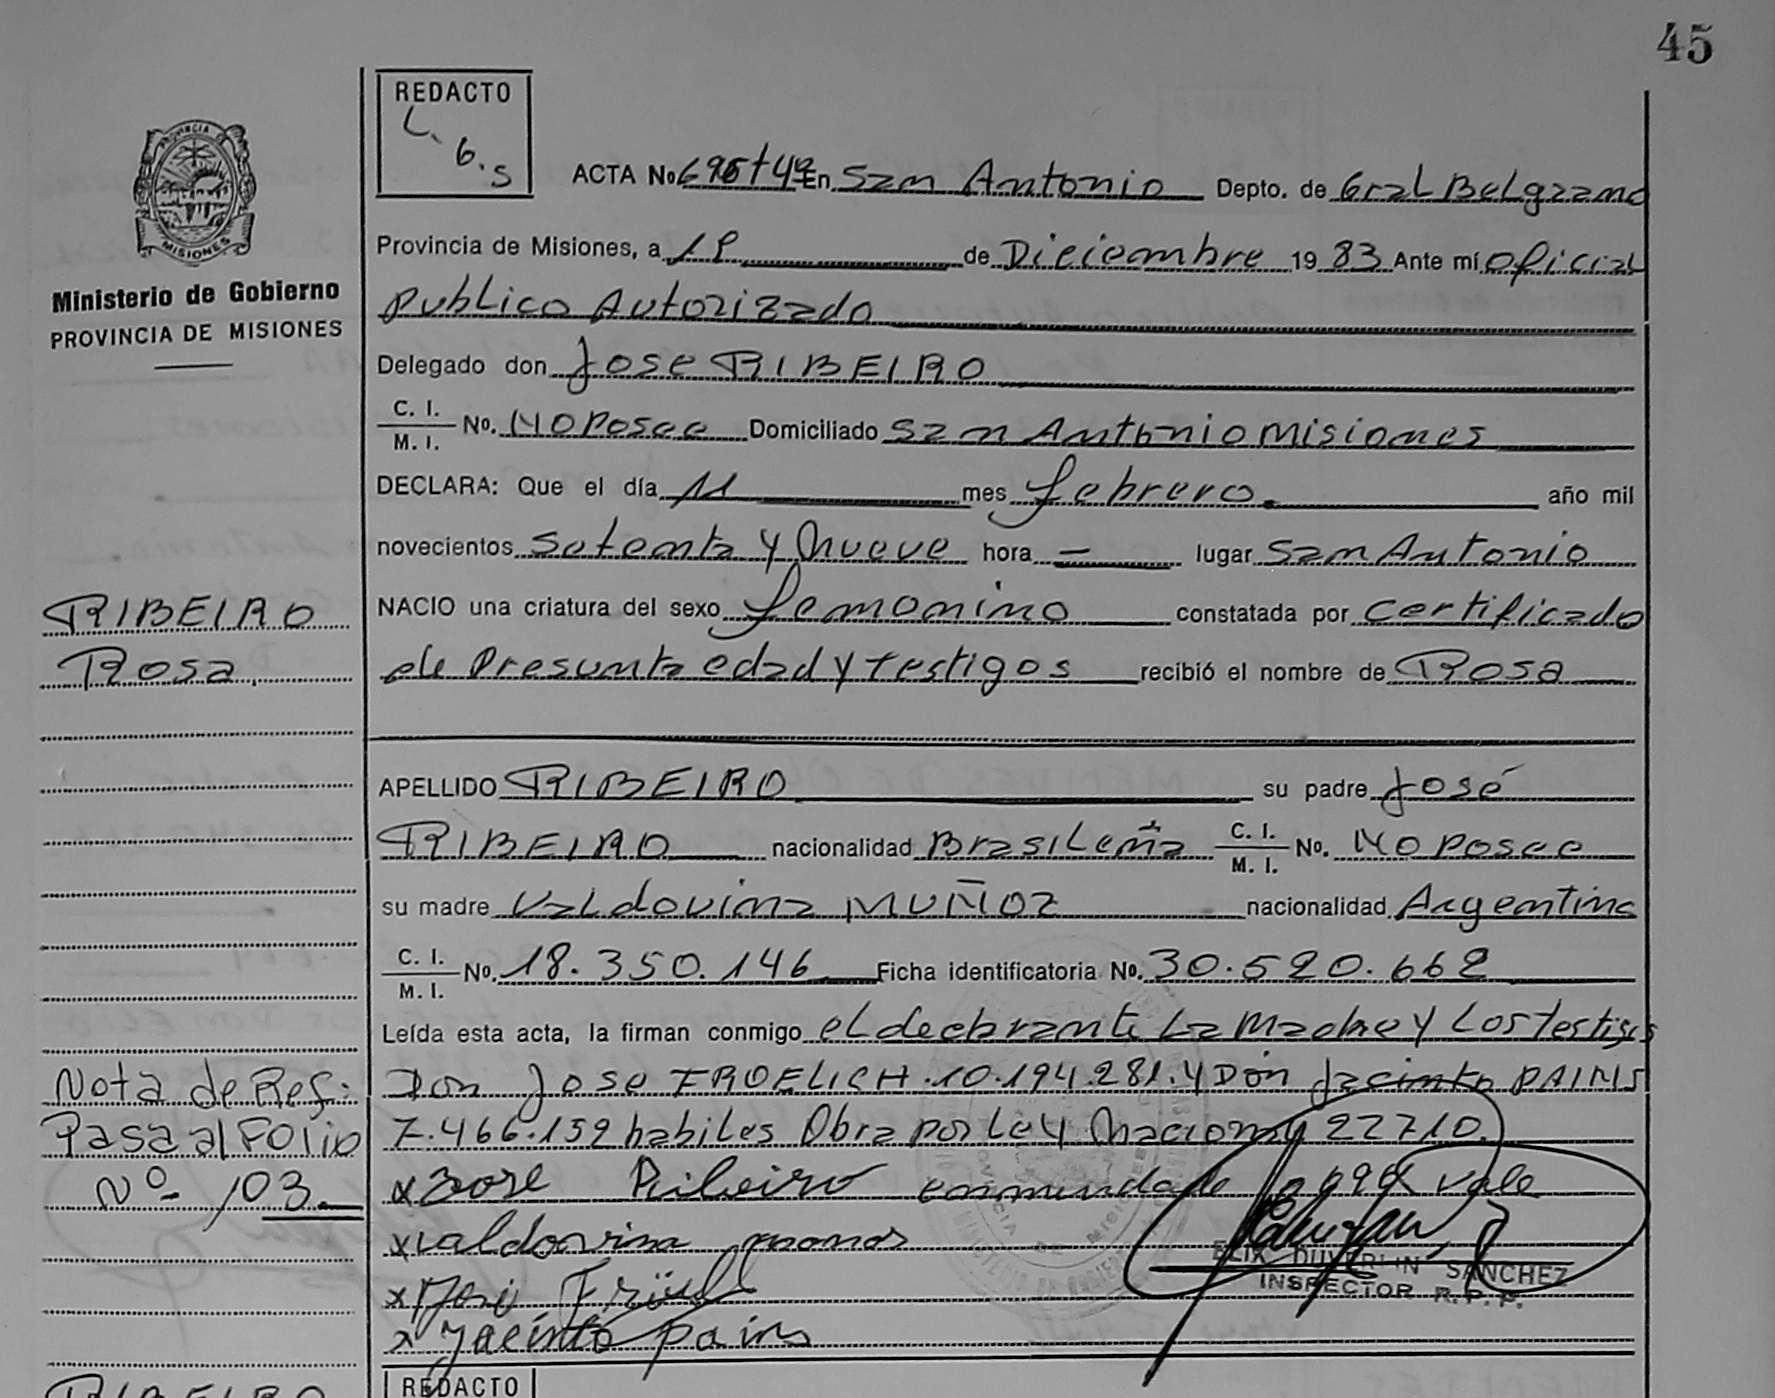 45
REDACTO
L. G. S
ACTA No. En San Antonio Depto. de Gral Belgrano
Provincia de Misiones, a de Diciembre 1983 Ante mí Oficial
Publico Autorizado
Delegado don Jose RIBEIRO
C. I.
M. I. No. No Posee Domiciliado San Antonio Misiones
DECLARA: Que el día 11 mes febrero. año mil
novecientos Setenta y Nueve hora — lugar San Antonio
NACIO una criatura del sexo femenino constatada por Certificado
de Presunta edad y testigos recibió el nombre de Rosa
APELLIDO RIBEIRO su padre José
RIBEIRO nacionalidad Brasileña C. I.
M. I. No. No Posee
su madre Valdovina MUÑOZ nacionalidad Argentina
C. I.
M. I. No. 18.350.146 Ficha identificatoria No. 30.520.662
Leída esta acta, la firman conmigo el declarante La Madre y Los testigos
Don Jose FROELICH. 10.194.281. y Don Jacinto PAINS
7.466.159 habiles Obra por Ley Nacional 22710.
x Jose Ribeiro enmendado vale
x valdovina
x José
x Jacinto pains
FELIX DUVERLIN SANCHEZ
INSPECTOR R. P. P.
PROVINCIA DE
MISIONES
Ministerio de Gobierno
PROVINCIA DE MISIONES
RIBEIRO
Rosa.
Nota de Ref:
Pasa al Folio
Nº 103
RIBEIRO
REDACTO